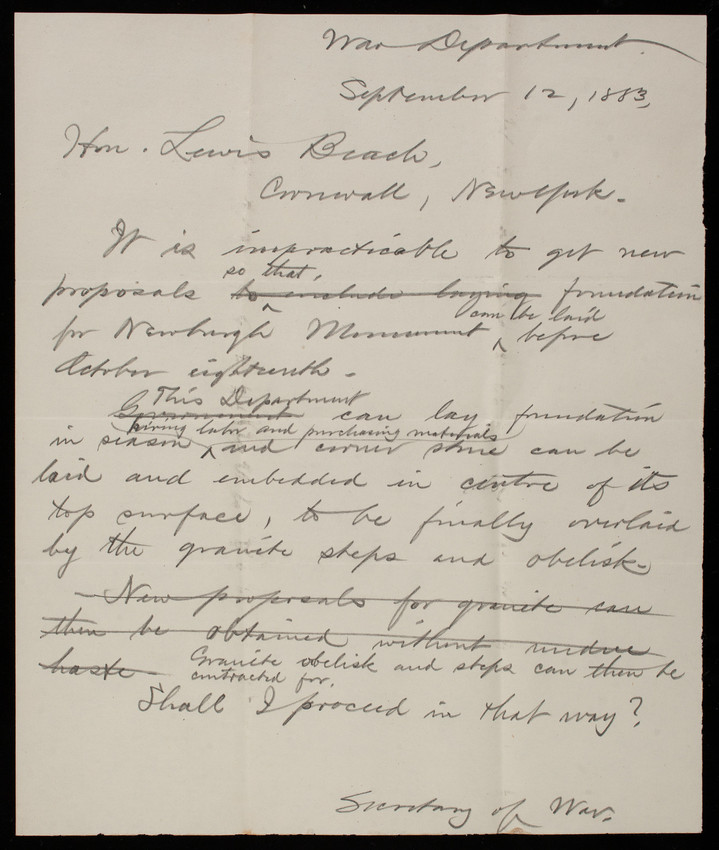 War Department.
September 12, 1883,
Hon. Lewis Beach,
Cornwall, New York.
It is impracticable to get new
so that,
proposals to include laying foundation
can be laid
for Newburgh Monument ‸ before
October eighteenth.
This Department
Government can lay foundation
hiring labor and purchasing materials
in season ‸ and corner stone can be
laid and embedded in centre of its
top surface, to be finally overlaid
by the granite steps and obelisk.
New proposals for granite can
then be obtained without undue
haste. Granite obelisk and steps can then be
contracted for.
Shall I proceed in that way?
Secretary of War.